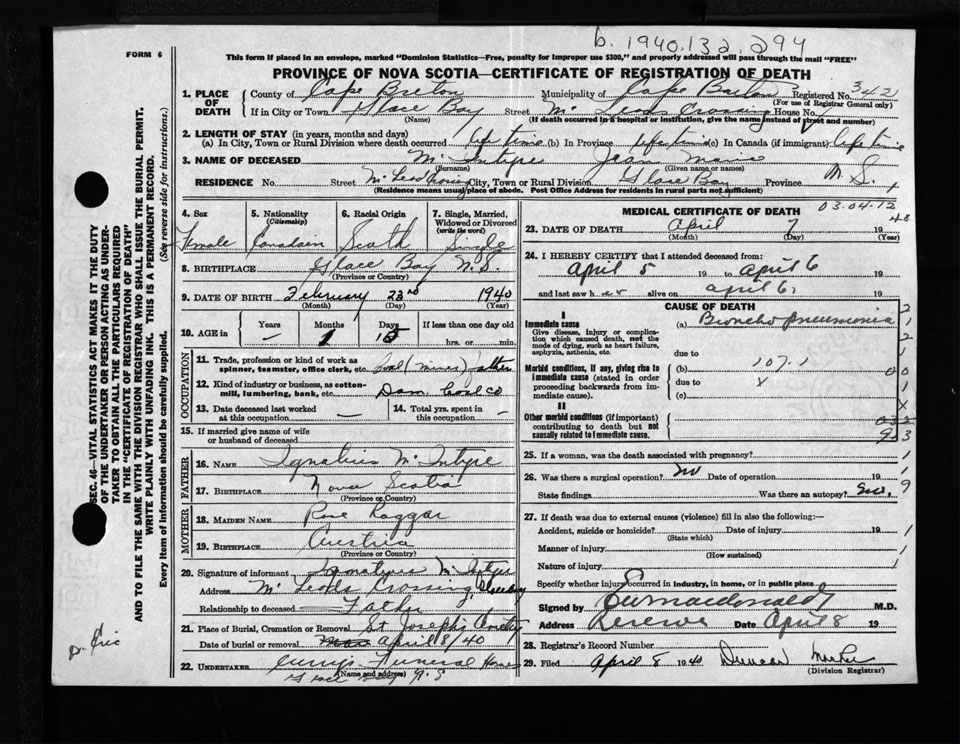 b. 1940.132.294
FORM 6
This form if placed in an envelope, marked "Dominion Statistics—Free, penalty for improper use $300," and properly addressed will pass through the mail "FREE"
PROVINCE OF NOVA SCOTIA—CERTIFICATE OF REGISTRATION OF DEATH
1. PLACE OF DEATH County of Cape Breton Municipality of Cape Breton Registered No. 342
(For use of Registrar General only)
If in City or Town Glace Bay Street McLeods Crossing House No.
(Name) (If death occurred in a hospital or institution, give the name instead of street and number)
2. LENGTH OF STAY (in years, months and days)
(a) In City, Town or Rural Division where death occurred life time (b) In Province lifetime (c) In Canada (if immigrant) life time
3. NAME OF DECEASED McIntyre Jean Marie
(Surname) (Given name or names)
RESIDENCE No. Street McLeod Crossing City, Town or Rural Division Glace Bay Province N.S.
(Residence means usual place of abode. Post Office Address for residents in rural parts not sufficient)
4. Sex 5. Nationality (Citizenship) 6. Racial Origin 7. Single, Married, Widowed or Divorced (write the word)
Female Canadain Scoth Single
8. BIRTHPLACE Glace Bay N.S.
(Province or Country)
9. DATE OF BIRTH February 23rd 1940
(Month) (Day) (Year)
10. AGE in Years Months Days If less than one day old
— 1 15 hrs. or min.
OCCUPATION
11. Trade, profession or kind of work as spinner, teamster, office clerk, etc. Coal (miner) father
12. Kind of industry or business, as cotton-mill, lumbering, bank, etc. Dom. Coal Co
13. Date deceased last worked at this occupation —
14. Total yrs. spent in this occupation —
15. If married give name of wife or husband of deceased
FATHER
16. NAME Ignatius McIntyre
17. BIRTHPLACE Nova Scotia
(Province or Country)
MOTHER
18. MAIDEN NAME Rose Raggar
19. BIRTHPLACE Austria
(Province or Country)
20. Signature of informant Ignatius McIntyre
Address McLeods Crossing, Glace Bay
Relationship to deceased Father
21. Place of Burial, Cremation or Removal St Joseph's
Date of burial or removal April 8/40
22. UNDERTAKER Currys Funeral Home
(Name and address)
Glace Bay N.S
03.04.12
MEDICAL CERTIFICATE OF DEATH
23. DATE OF DEATH April 7 19 40
(Month) (Day) (Year)
24. I HEREBY CERTIFY that I attended deceased from:
April 5 19 to April 6 19
and last saw her alive on April 6, 19
CAUSE OF DEATH
I
Immediate cause (a) Broncho pneumonia
Give disease, injury or complication which caused death, not the mode of dying, such as heart failure, asphyxia, asthenia, etc.
due to
Morbid conditions, if any, giving rise to immediate cause (stated in order proceeding backwards from immediate cause). (b) 107.1
due to
(c)
II
Other morbid conditions (if important) contributing to death but not causally related to immediate cause.
25. If a woman, was the death associated with pregnancy?
26. Was there a surgical operation? No Date of operation 19
State findings Was there an autopsy? No.
27. If death was due to external causes (violence) fill in also the following:—
Accident, suicide or homicide? Date of injury 19
(State which)
Manner of injury
(How sustained)
Nature of injury
Specify whether injury occurred in industry, in home, or in public place
Signed by Macdonald M.D.
Address Reserve Date April 8 19
28. Registrar's Record Number
29. Filed April 8 1940 Duncan
(Division Registrar)
SEC. 46—VITAL STATISTICS ACT MAKES IT THE DUTY OF THE UNDERTAKER OR PERSON ACTING AS UNDERTAKER TO OBTAIN ALL THE PARTICULARS REQUIRED IN THE "CERTIFICATE OF REGISTRATION OF DEATH" AND TO FILE THE SAME WITH THE DIVISION REGISTRAR WHO SHALL ISSUE THE BURIAL PERMIT.
WRITE PLAINLY WITH UNFADING INK. THIS IS A PERMANENT RECORD.
Every item of information should be carefully supplied. (See reverse side for instructions.)